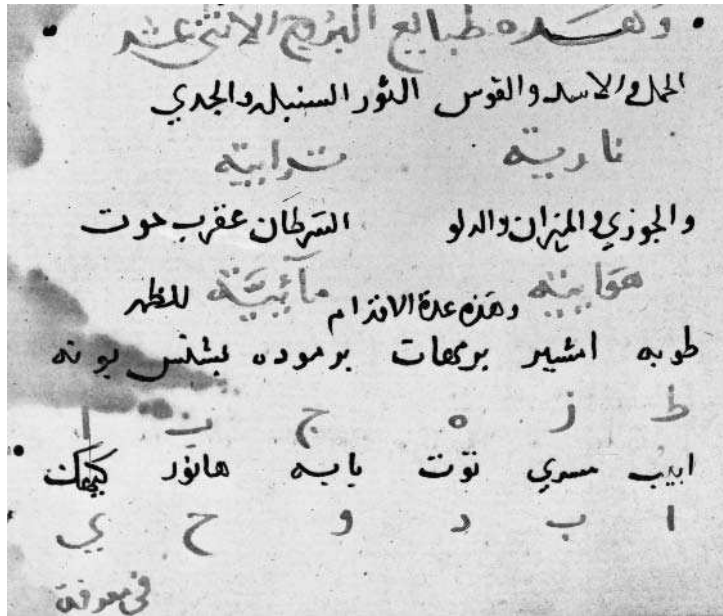 وهذه طبايع البروج الاثنى عشر
الحمل والاسد والقوس الثور السنبله والجدي
نارية ترابية
والجوزي والميزان والدلو السرطان عقرب حوت
هوايية مآئيية
وهذه عدة الاقدام للظهر
طوبه امشير برمهات برموده بشنس بونه
ط ز ه ج ب ا
ابيب مسري توت بابه هاتور كيهك
ا ب د و ح ي
فى معرفة